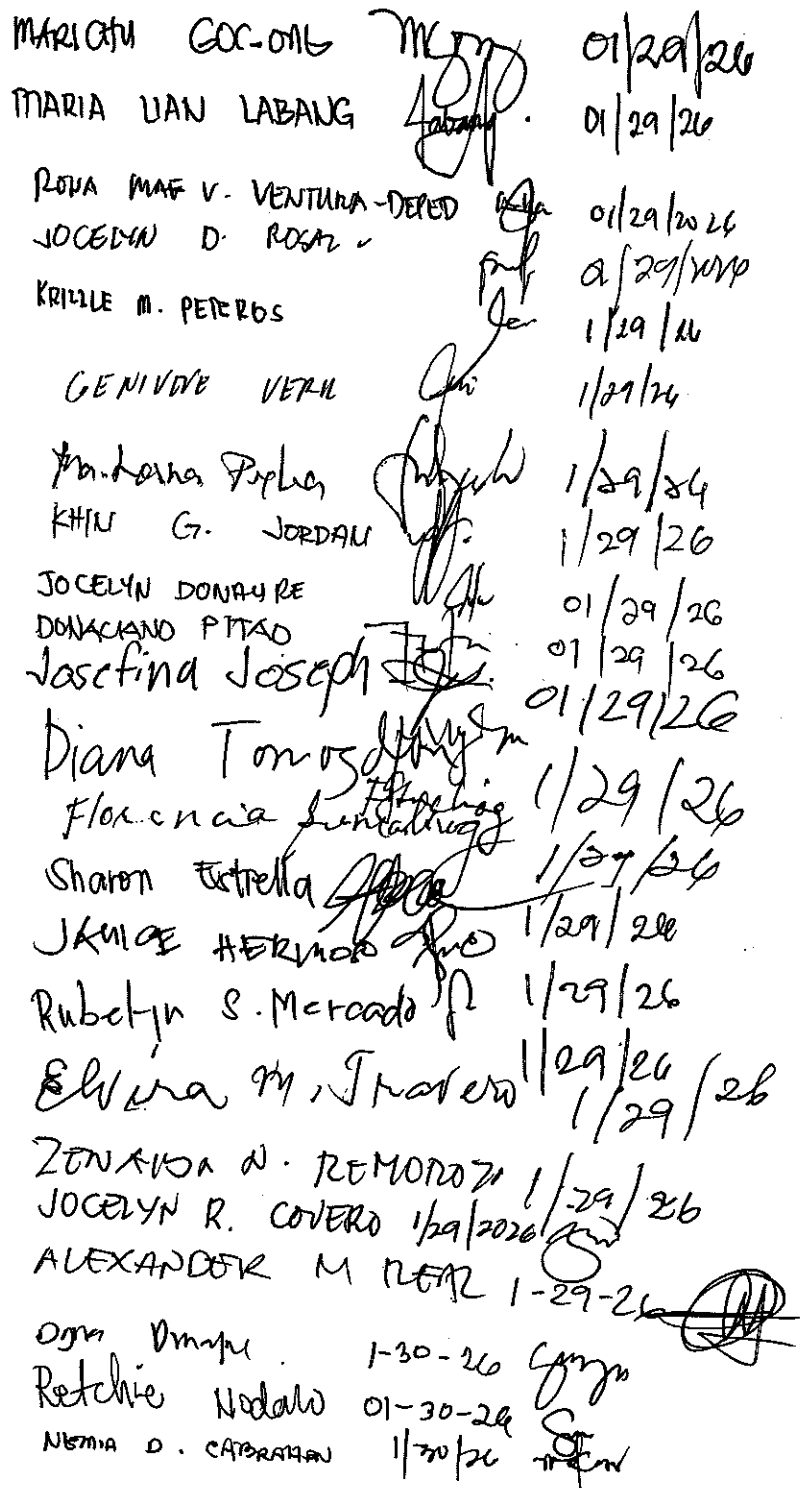 MARICHU GOC-ONG 01/29/26
MARIA LIAN LABANG Labang. 01/29/26
RONA MAE V. VENTURA-DEPED 01/29/2026
JOCELYN D. ROSAL 01/29/2026
KRIZZLE M. PETEROS 1/29/26
GENIVIVE VERA 1/29/26
Ma. Lorna 1/29/26
KHIN G. JORDAN 1/29/26
JOCELYN DONAYRE 01/29/26
DONACIANO PITAO 01/29/26
Josefina Joseph 01/29/26
Diana Tomos 1/29/26
Florencia 1/29/26
Sharon Estrella 1/29/26
JANICE HERMOSO 1/29/26
Rubelyn S. Mercado 1/29/26
Elvira M. Travero 1/29/26
1/29/26
ZENAIDA N. REMOROZA 1/29/26
JOCELYN R. COVERO 1/29/2026
ALEXANDER M REAL 1-29-26
1-30-26
Retchie Nodalo 01-30-26
NEMIA D. CABRAHAN 1/30/26